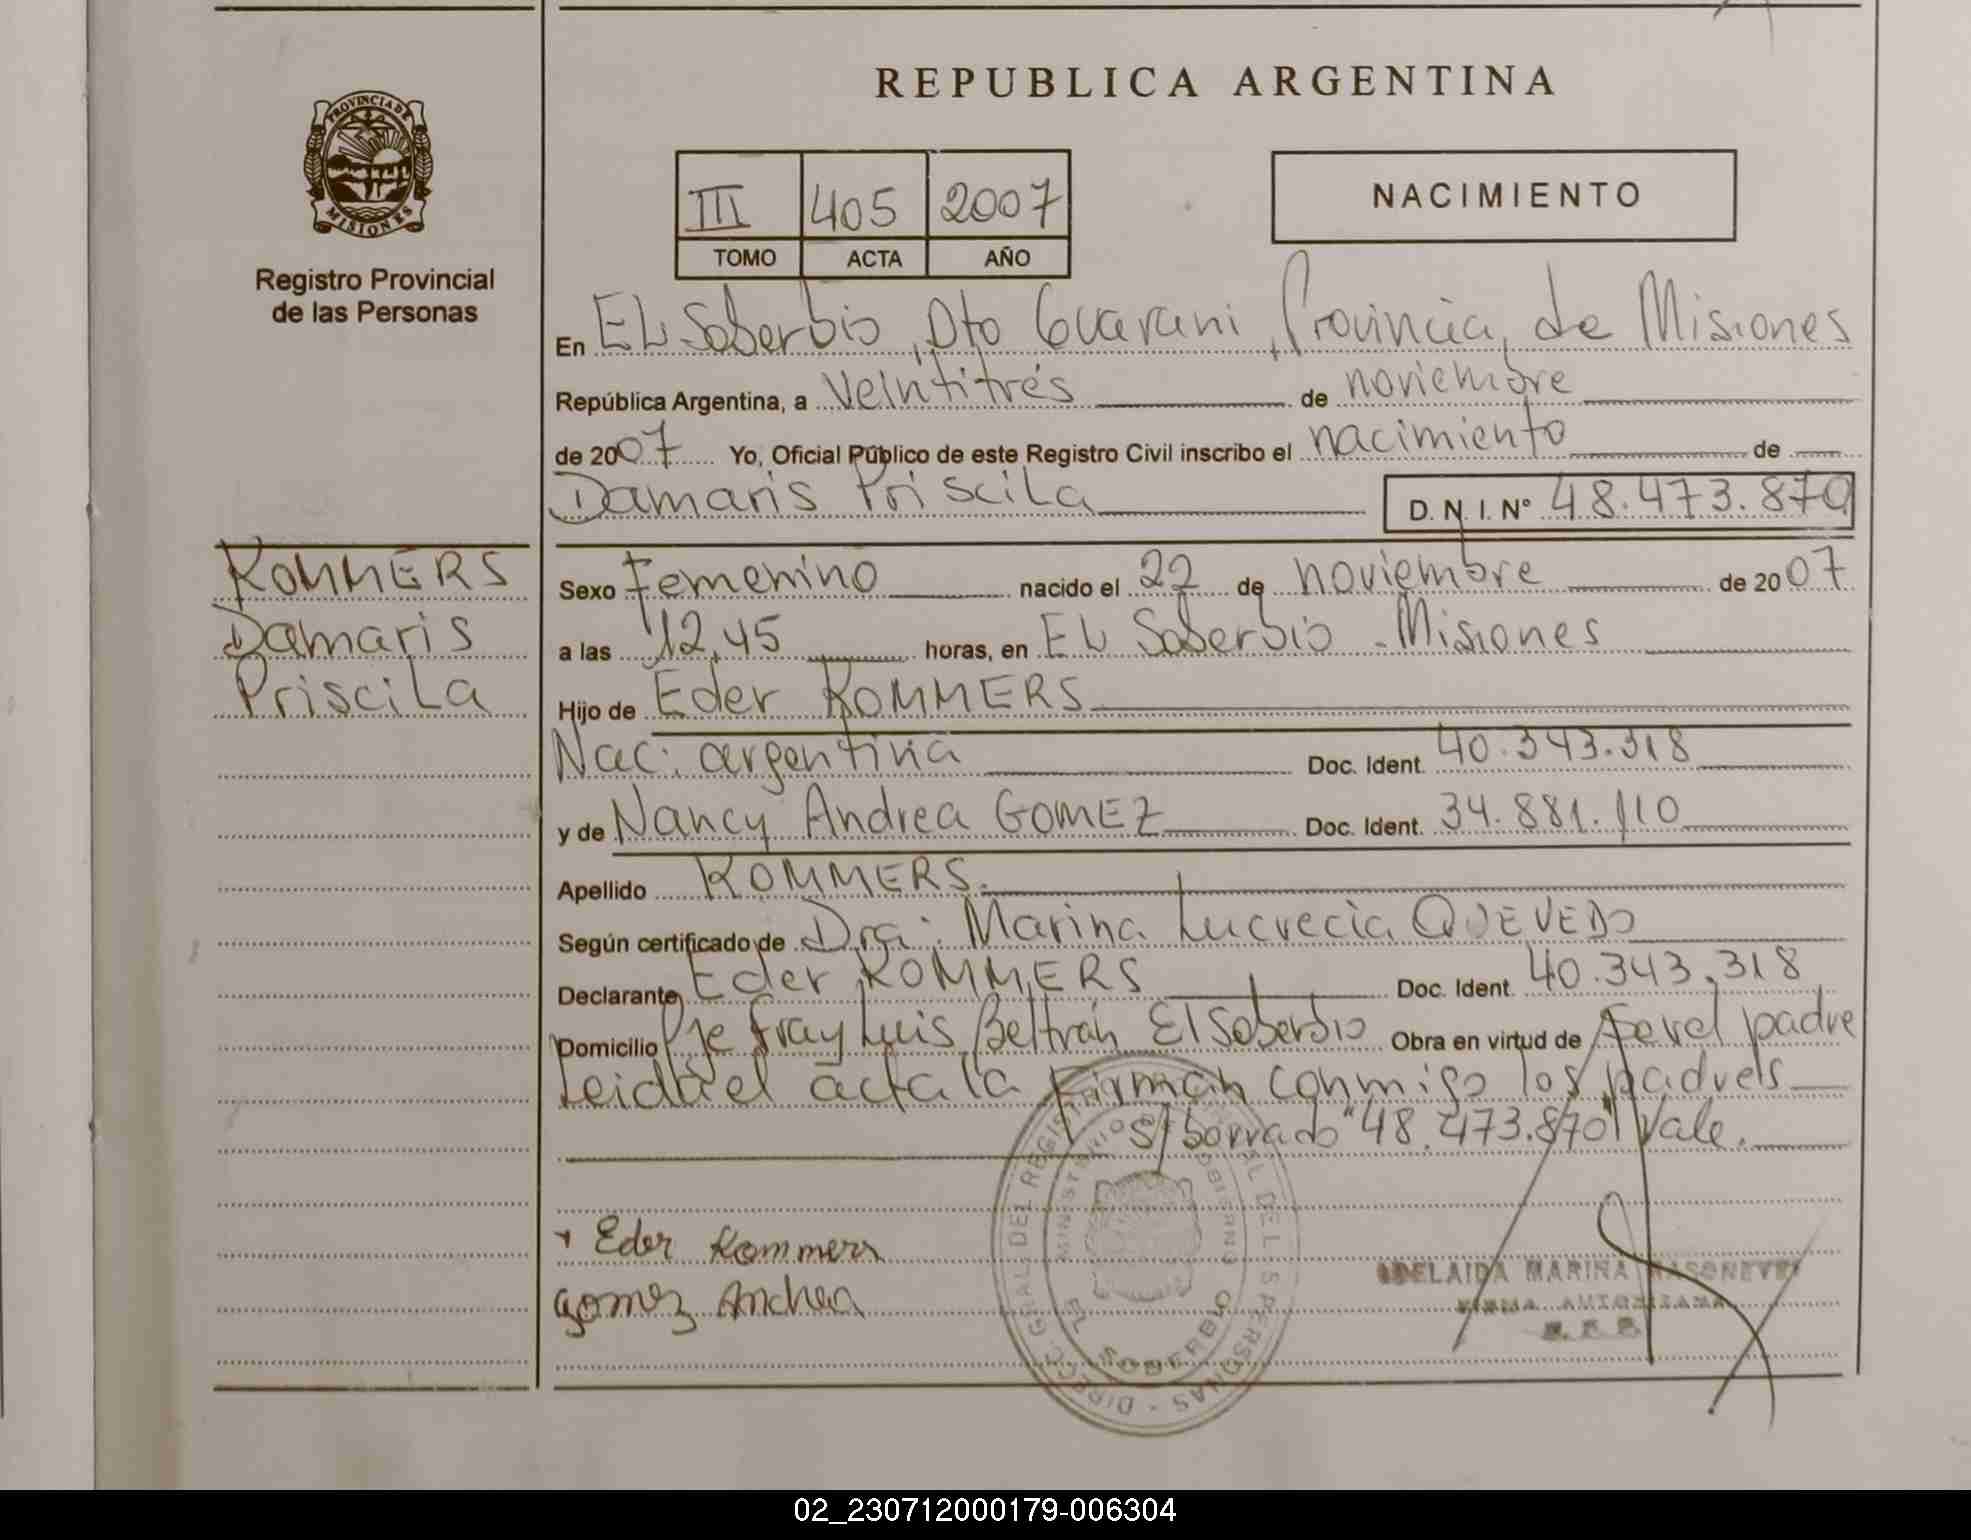 REPUBLICA ARGENTINA
PROVINCIA DE MISIONES
Registro Provincial
de las Personas
III 405 2007
TOMO ACTA AÑO
NACIMIENTO
En EL Soberbio, Dto Guarani, Provincia de Misiones
República Argentina, a Veintitrés de noviembre
de 2007 Yo, Oficial Público de este Registro Civil inscribo el nacimiento de
Damaris Priscila D. N. I. Nº 48.473.870
KOMMERS
Damaris
Priscila
Sexo Femenino nacido el 22 de noviembre de 2007
a las 12,45 horas, en EL Soberbio - Misiones
Hijo de Eder KOMMERS
Nac: argentina Doc. Ident. 40.343.318
y de Nancy Andrea GOMEZ Doc. Ident. 34.881.110
Apellido KOMMERS.
Según certificado de Dra: Marina Lucrecia QUEVEDO
Declarante Eder KOMMERS Doc. Ident. 40.343.318
Domicilio Pje fray Luis Beltrán El Soberbio Obra en virtud de ser el padre
Leida el acta la Firman conmigo los padres
s/borrado "48.473.870" Vale.
+ Eder Kommers
Gomez Andrea
DIREC. GRAL. DEL REGISTRO PROVINCIAL DE LAS PERSONAS
MINISTERIO DE GOBIERNO
EL SOBERBIO
ADELAIDA MARINA
FIRMA AUTORIZADA
02_230712000179-006304